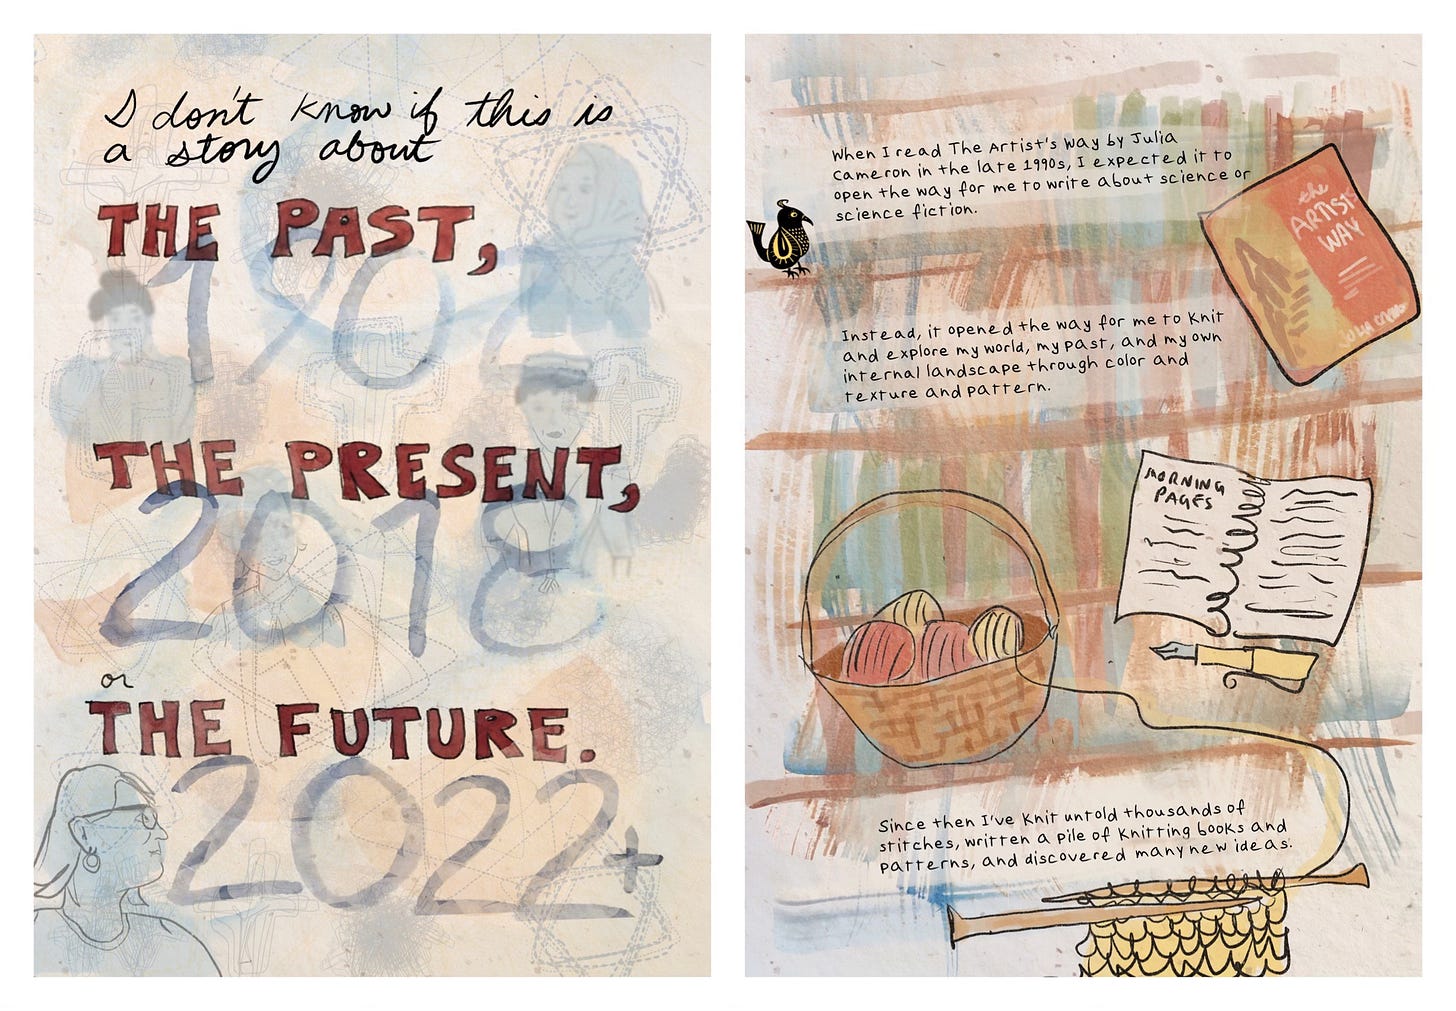 I don't know if this is
a story about
THE PAST,
190
THE PRESENT,
2018
or
THE FUTURE.
2022+
When I read The Artist's Way by Julia
Cameron in the late 1990s, I expected it to
open the way for me to write about science or
science fiction.
the
ARTIST
WAY
Instead, it opened the way for me to knit
and explore my world, my past, and my own
internal landscape through color and
texture and pattern.
MORNING
PAGES
Since then I've knit untold thousands of
stitches, written a pile of knitting books and
patterns, and discovered many new ideas.